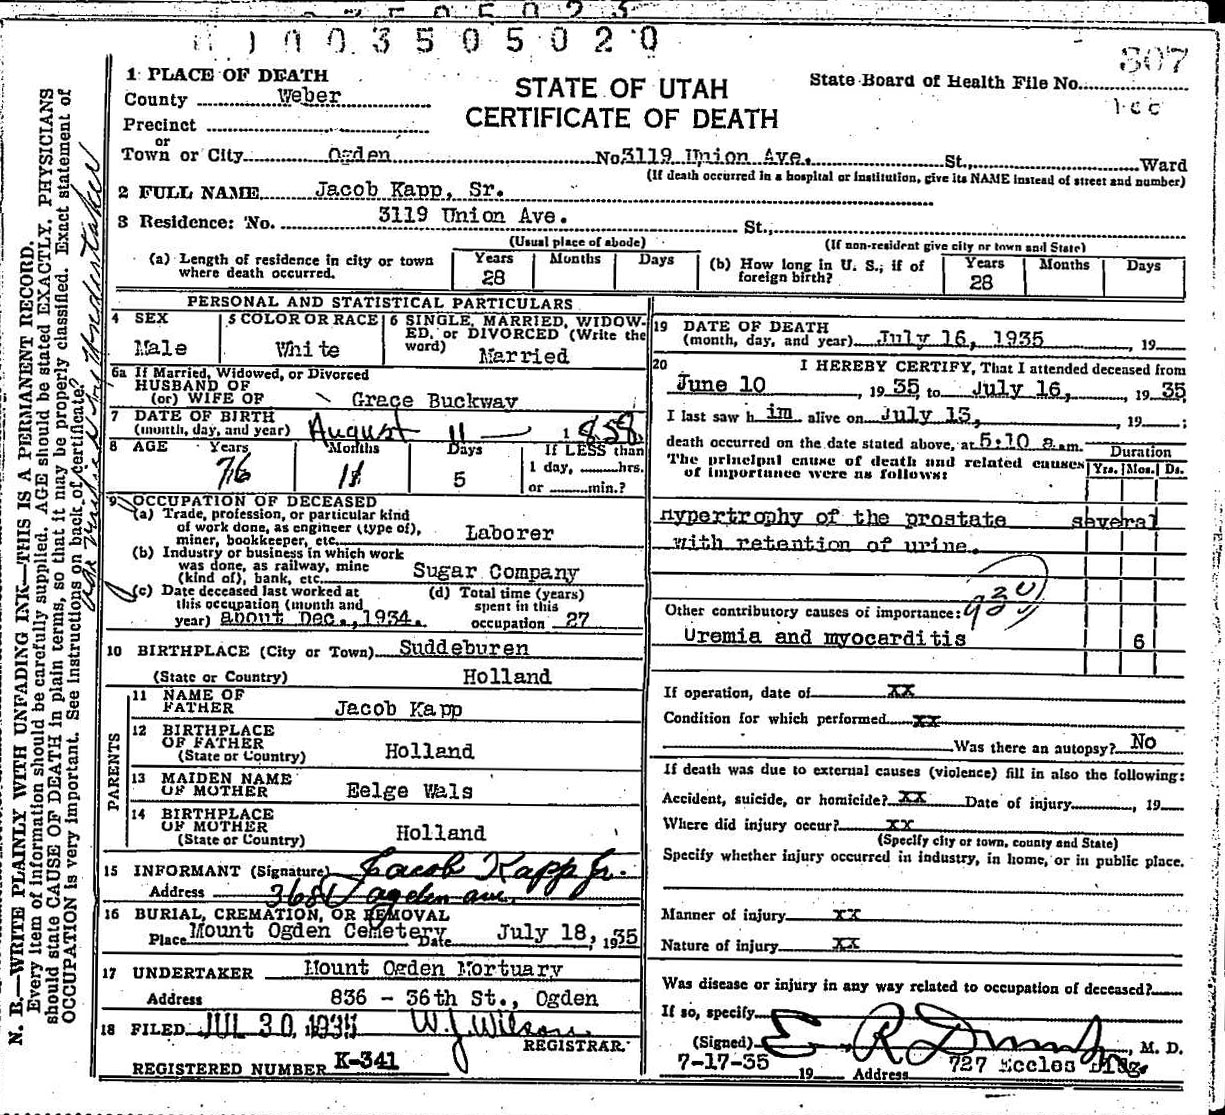 0 0 3 5 0 5 0 2 0
1 PLACE OF DEATH
County Weber
Precinct
or
Town or City Ogden No 3119 Union Ave. St., Ward
(If death occurred in a hospital or institution, give its NAME instead of street and number)
STATE OF UTAH
CERTIFICATE OF DEATH
State Board of Health File No. 807
2 FULL NAME Jacob Kapp, Sr.
3 Residence: No. 3119 Union Ave. St.,
(Usual place of abode) (If non-resident give city or town and State)
(a) Length of residence in city or town where death occurred. Years 28 Months Days
(b) How long in U. S.; if of foreign birth? Years 28 Months Days
PERSONAL AND STATISTICAL PARTICULARS
4 SEX Male
5 COLOR OR RACE White
6 SINGLE, MARRIED, WIDOW-
ED, or DIVORCED (Write the
word) Married
6a If Married, Widowed, or Divorced
HUSBAND OF
(or) WIFE OF Grace Buckway
7 DATE OF BIRTH
(month, day, and year) August 11 1858
8 AGE Years 76 Months 11 Days 5 If LESS than
1 day, hrs.
or min.?
9 OCCUPATION OF DECEASED
(a) Trade, profession, or particular kind
of work done, as engineer (type of),
miner, bookkeeper, etc. Laborer
(b) Industry or business in which work
was done, as railway, mine
(kind of), bank, etc. Sugar Company
(c) Date deceased last worked at
this occupation (month and
year) about Dec., 1934.
(d) Total time (years)
spent in this
occupation 27
10 BIRTHPLACE (City or Town) Suddeburen
(State or Country) Holland
PARENTS
11 NAME OF
FATHER Jacob Kapp
12 BIRTHPLACE
OF FATHER
(State or Country) Holland
13 MAIDEN NAME
OF MOTHER Eelge Wals
14 BIRTHPLACE
OF MOTHER
(State or Country) Holland
15 INFORMANT (Signature) Jacob Kapp Jr.
Address Ogden ave.
16 BURIAL, CREMATION, OR REMOVAL
Place Mount Ogden Cemetery Date July 18, 1935
17 UNDERTAKER Mount Ogden Mortuary
Address 836 - 36th St., Ogden
18 FILED JUL 30 1935 W. J. Wilson
REGISTRAR.
REGISTERED NUMBER K-341
19 DATE OF DEATH
(month, day, and year) July 16, 1935, 19
20 I HEREBY CERTIFY, That I attended deceased from
June 10, 1935 to July 16, 1935
I last saw h im alive on July 15, , 19 ;
death occurred on the date stated above, at 5:10 a.m.
The principal cause of death and related causes
of importance were as follows:
Duration
Yrs. Mos. Ds.
Hypertrophy of the prostate several
with retention of urine.
Other contributory causes of importance:
Uremia and myocarditis 6
If operation, date of XX
Condition for which performed XX
Was there an autopsy? No
If death was due to external causes (violence) fill in also the following:
Accident, suicide, or homicide? XX Date of injury , 19
Where did injury occur? XX
(Specify city or town, county and State)
Specify whether injury occurred in industry, in home, or in public place.
Manner of injury XX
Nature of injury XX
Was disease or injury in any way related to occupation of deceased?
If so, specify
(Signed) E. R. , M. D.
7-17-35 19 Address 727 Eccles Bldg.
N. B.—WRITE PLAINLY WITH UNFADING INK—THIS IS A PERMANENT RECORD.
Every item of information should be carefully supplied. AGE should be stated EXACTLY. PHYSICIANS
should state CAUSE OF DEATH in plain terms, so that it may be properly classified. Exact statement of
OCCUPATION is very important. See instructions on back of certificate.